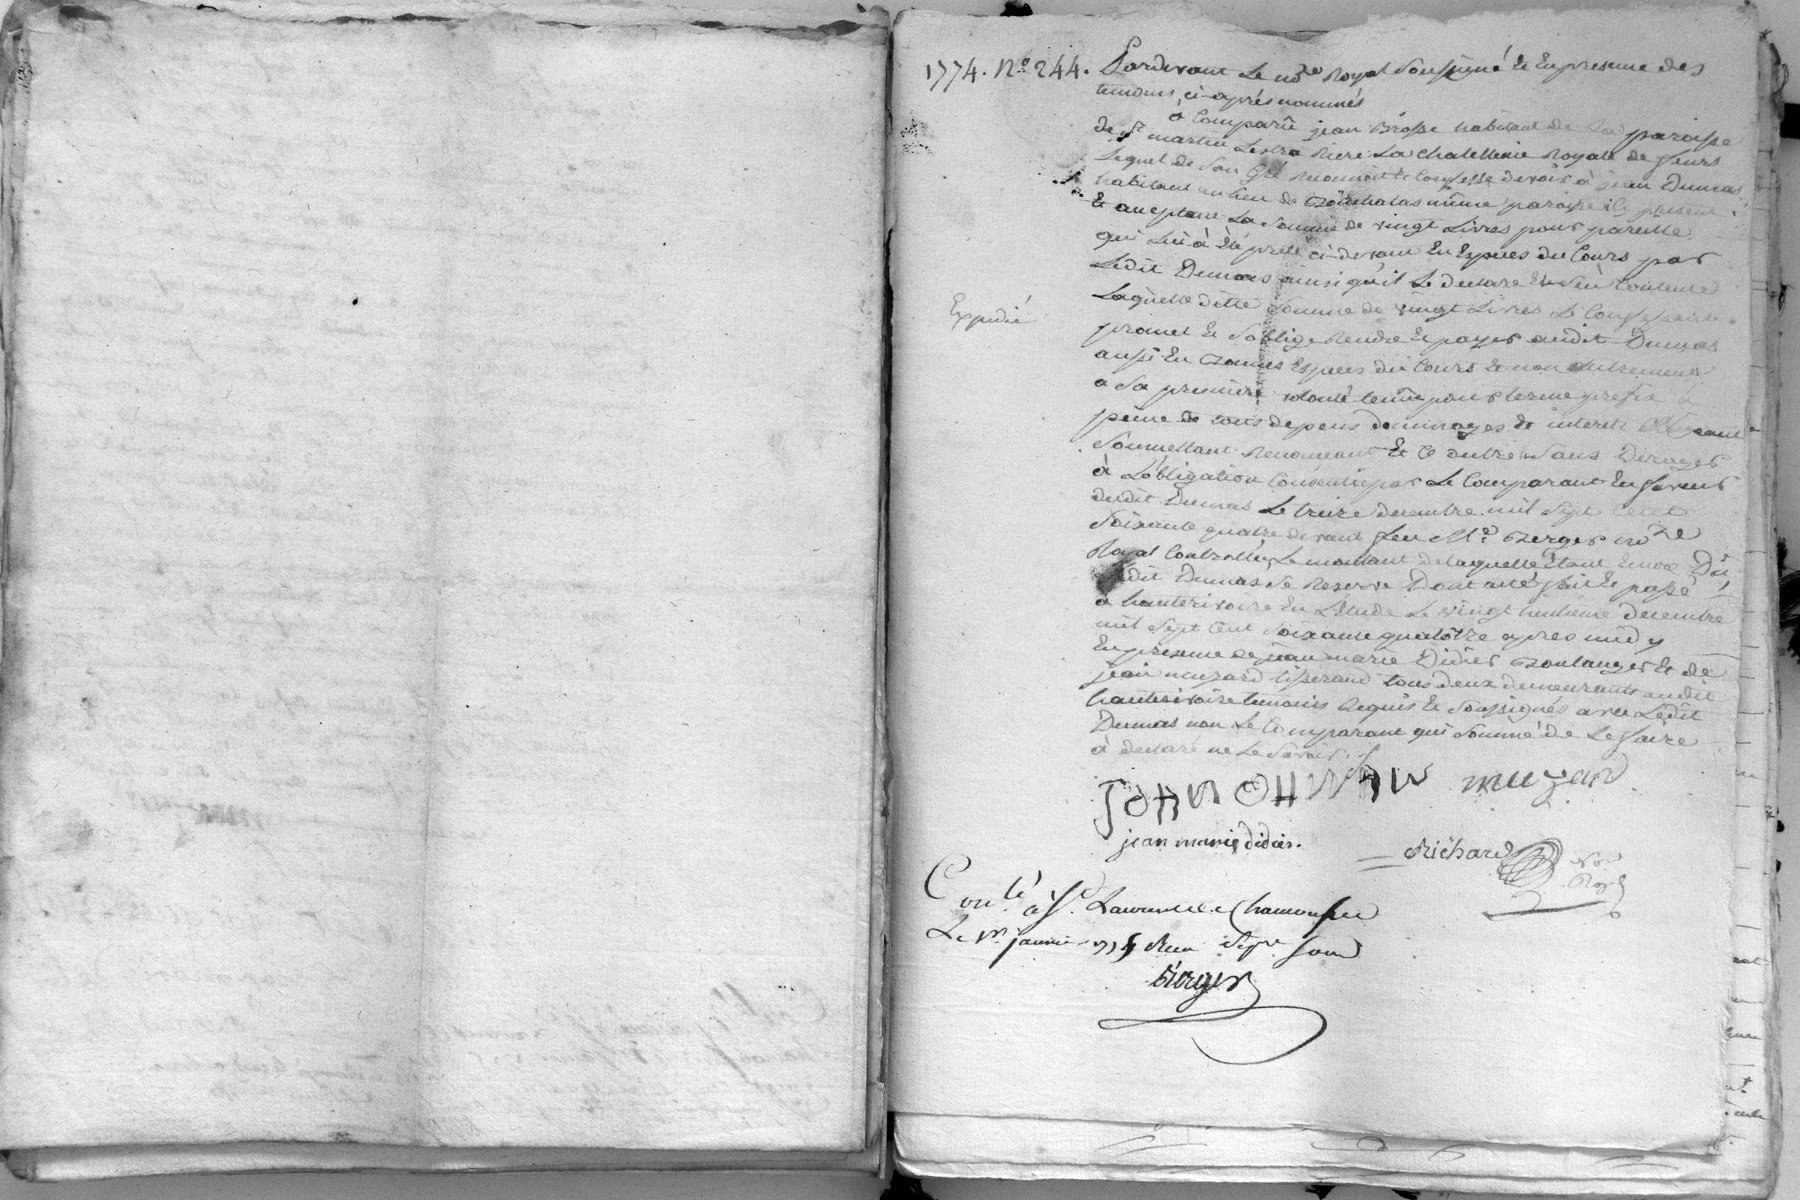 1774. No. 244. Pardevant Le nore Royal Soussigné Et En presence des
temoins ci-après nommés
a Comparû jean Brosse habitant de La paroisse
de St martin Lestra Riere La Chatellenie Royale de feurs
Lequel de Son Gré Reconnoit Et Confesse devoir à jean Dumas
habitant au lieu de même paroisse ici present
Et acceptant La Somme de vingt Livres pour pareille
qui Lui à Eté pretée ci-devant En Especes du Cours par
Ledit Dumas ainsi qu'il Le declare Et S'en Contente
Laquelle ditte Somme de vingt Livres Le Confessant
promet Et S'oblige Rendre Et payer audit Dumas
aussi En Bonnes Especes du Cours Et non autrement
a Sa premiere volonté tenüe pour terme prefix a
peine de tous depens dommages Et interets Obligeant
Soumettant Renonceant Et Ce outre Sans Deroger
à L'obligation Consentie par Le Comparant En faveur
dudit Dumas Le treize decembre mil Sept Cent
Soixante quatre devant feu Me Berger nore
Royal Controllée, Le montant de laquelle Etant Encore Dû
Ledit Dumas Se Reserve Dont acte fait Et passé
a hauterivoire En L'Etude Le vingt huitieme decembre
mil Sept Cent Soixante quatorze après midy
En presence de jean marie Didier Boulanger Et de
jean muzard tisserand tous deux demeurants audit
hauterivoire temoins Requis Et Soussignés avec Ledit
Dumas non Le Comparant qui Sommé de Le faire
à declaré ne Le Savoir
Expedié
muzard
jean marie didier.
Richard Nore
Royal
Conlé à St. Laurent de Chamousset
Le 1er janvier 1775 Reçu Sept Sous
Berger